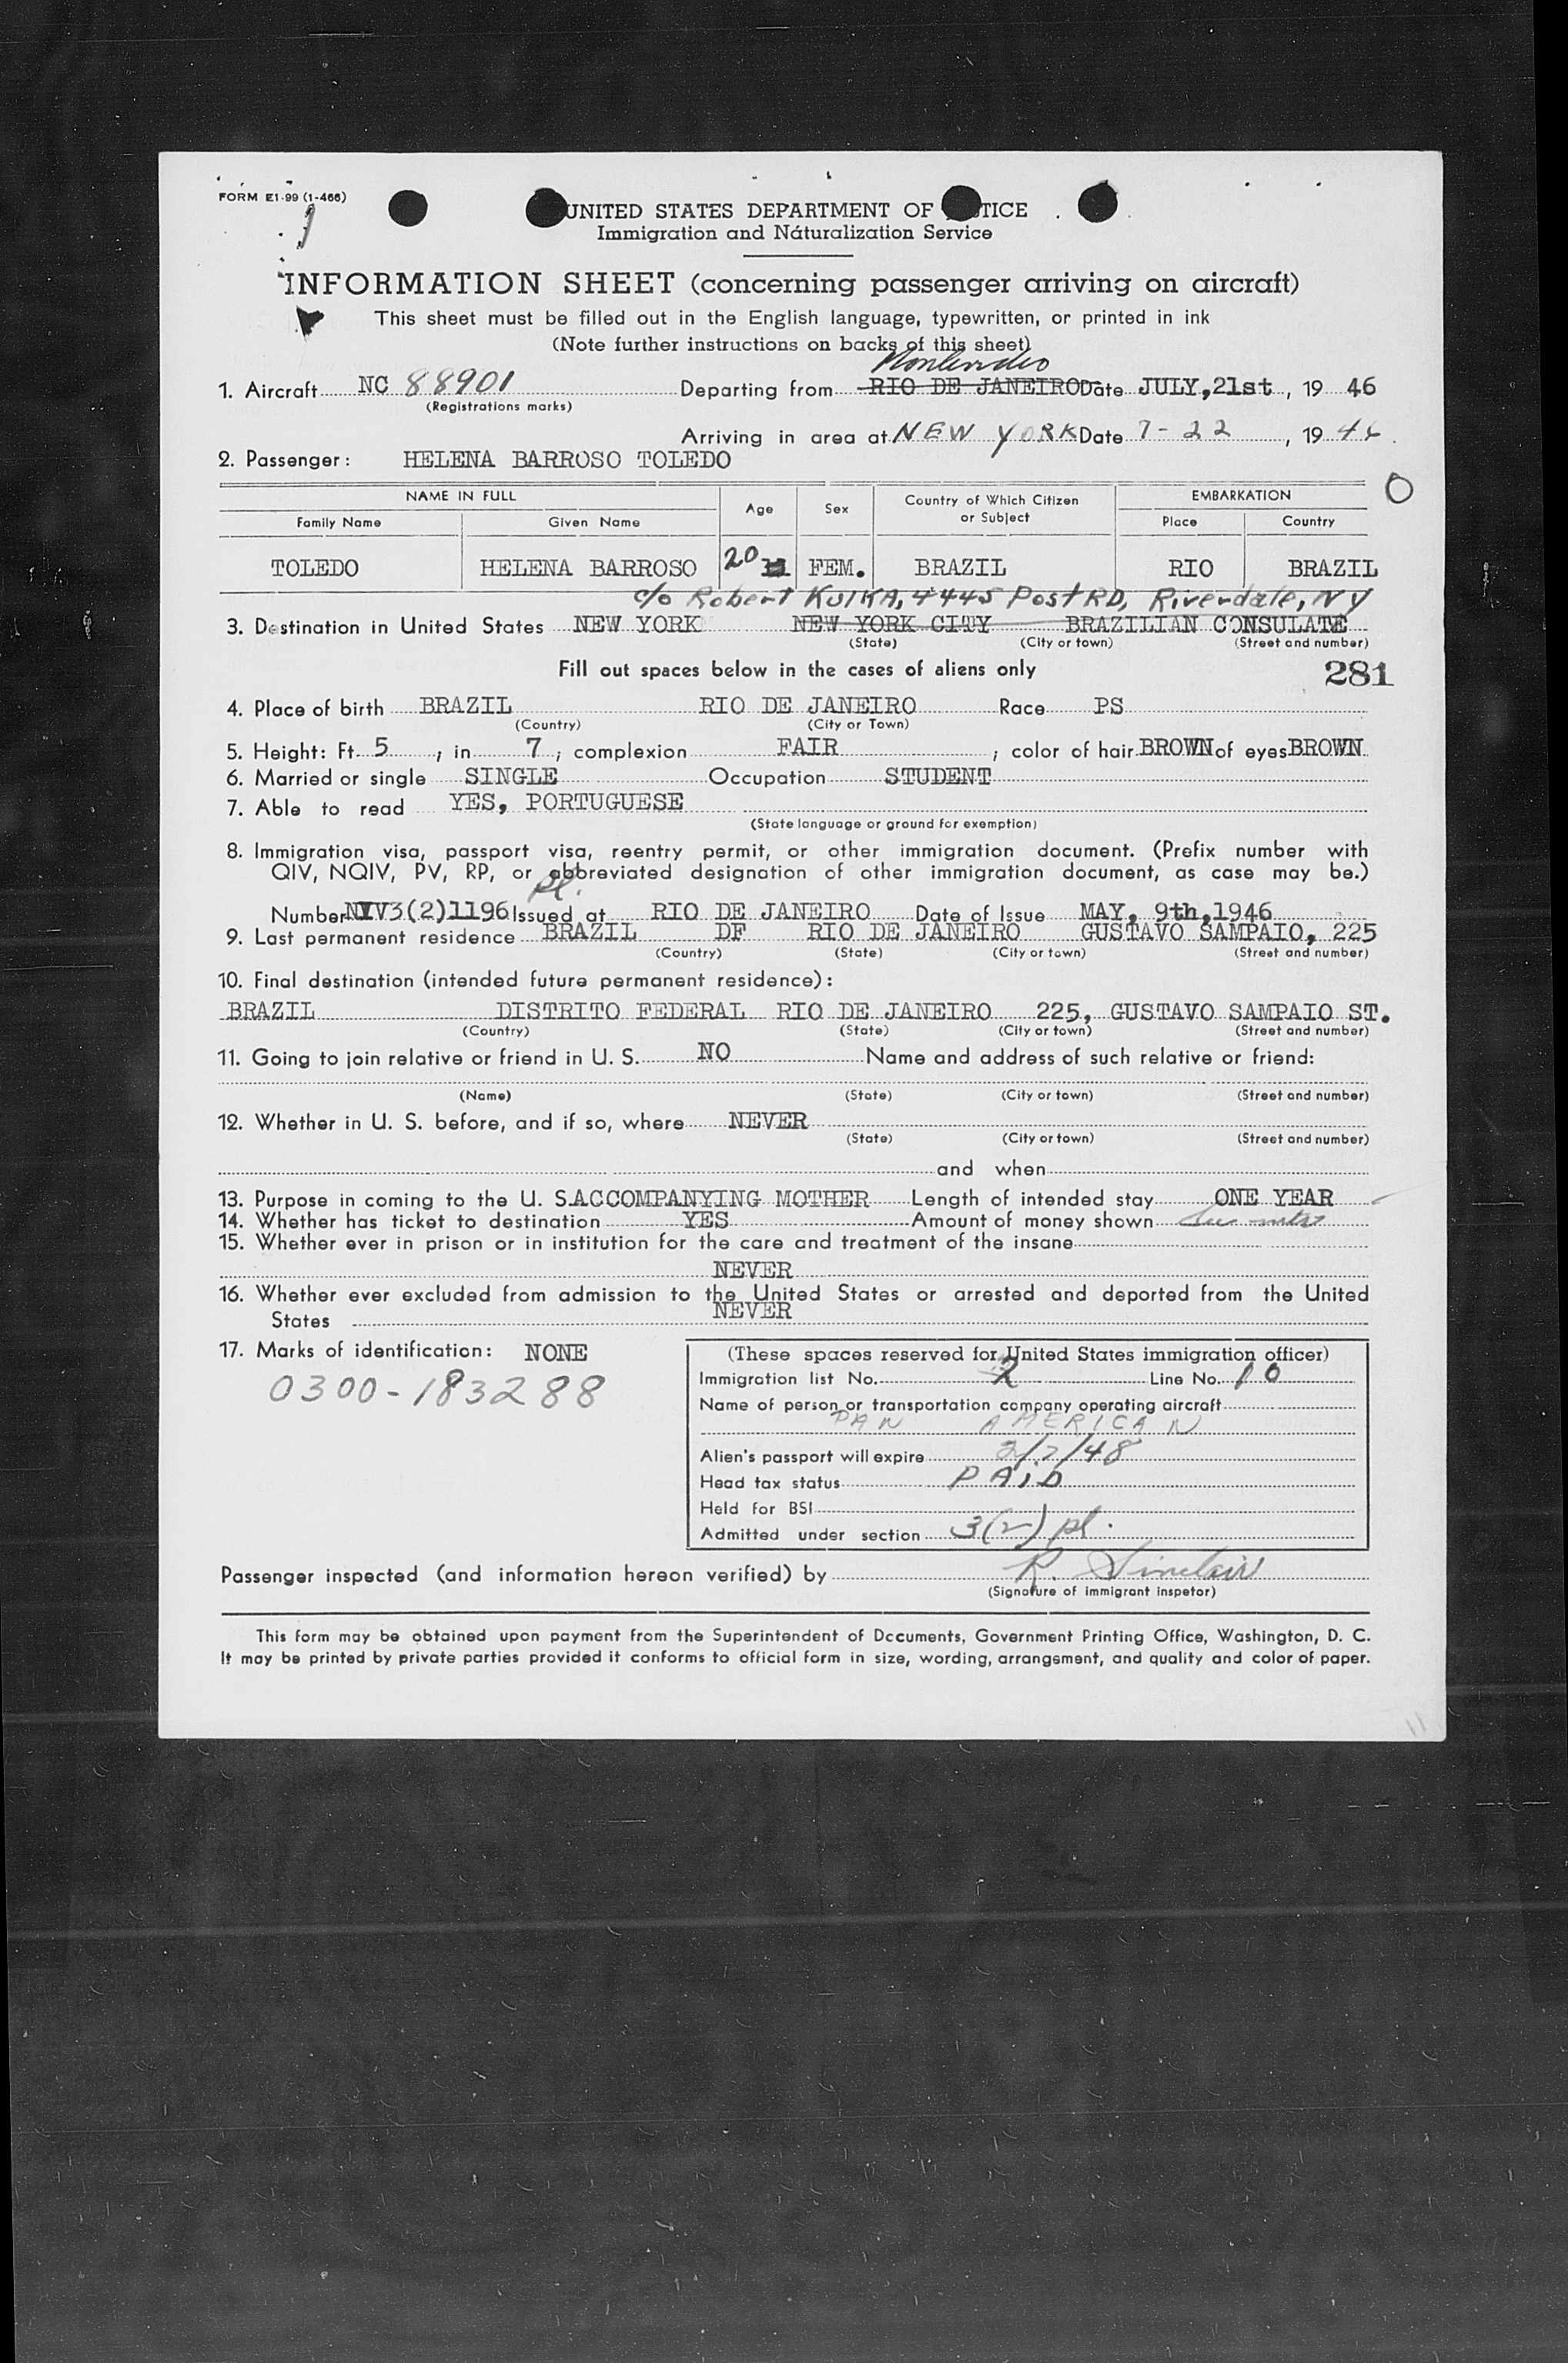 FORM E1-99 (1-466)
UNITED STATES DEPARTMENT OF TICE
Immigration and Naturalization Service
INFORMATION SHEET (concerning passenger arriving on aircraft)
This sheet must be filled out in the English language, typewritten, or printed in ink
(Note further instructions on backs of this sheet)
Montevideo
1. Aircraft NC 88901 Departing from RIO DE JANEIRO Date JULY,21st, 19 46
(Registrations marks)
Arriving in area at NEW YORK Date 7-22, 19 46
2. Passenger: HELENA BARROSO TOLEDO
NAME IN FULL Age Sex Country of Which Citizen or Subject EMBARKATION O
Family Name Given Name Place Country
TOLEDO HELENA BARROSO 20 FEM. BRAZIL RIO BRAZIL
c/o Robert KUIKA, 4445 Post RD, Riverdale, NY
3. Destination in United States NEW YORK NEW YORK CITY BRAZILIAN CONSULATE
(State) (City or town) (Street and number)
Fill out spaces below in the cases of aliens only 281
4. Place of birth BRAZIL RIO DE JANEIRO Race PS
(Country) (City or Town)
5. Height: Ft. 5, in 7; complexion FAIR; color of hair BROWN of eyes BROWN
6. Married or single SINGLE Occupation STUDENT
7. Able to read YES, PORTUGUESE
(State language or ground for exemption)
8. Immigration visa, passport visa, reentry permit, or other immigration document. (Prefix number with
QIV, NQIV, PV, RP, or abbreviated designation of other immigration document, as case may be.)
pl.
Number 3(2)1196 Issued at RIO DE JANEIRO Date of Issue MAY, 9th,1946
9. Last permanent residence BRAZIL DF RIO DE JANEIRO GUSTAVO SAMPAIO, 225
(Country) (State) (City or town) (Street and number)
10. Final destination (intended future permanent residence):
BRAZIL DISTRITO FEDERAL RIO DE JANEIRO 225, GUSTAVO SAMPAIO ST.
(Country) (State) (City or town) (Street and number)
11. Going to join relative or friend in U. S. NO Name and address of such relative or friend:
(Name) (State) (City or town) (Street and number)
12. Whether in U. S. before, and if so, where NEVER
(State) (City or town) (Street and number)
and when
13. Purpose in coming to the U. S. ACCOMPANYING MOTHER Length of intended stay ONE YEAR
14. Whether has ticket to destination YES Amount of money shown
15. Whether ever in prison or in institution for the care and treatment of the insane
NEVER
16. Whether ever excluded from admission to the United States or arrested and deported from the United
States NEVER
17. Marks of identification: NONE
0300-183288
(These spaces reserved for United States immigration officer)
Immigration list No. 2 Line No. 10
Name of person or transportation company operating aircraft
PAN AMERICAN
Alien's passport will expire 2/7/48
Head tax status PAID
Held for BSI
Admitted under section 3(2) pl.
Passenger inspected (and information hereon verified) by R. Sinclair
(Signature of immigrant inspetor)
This form may be obtained upon payment from the Superintendent of Documents, Government Printing Office, Washington, D. C.
It may be printed by private parties provided it conforms to official form in size, wording, arrangement, and quality and color of paper.
11